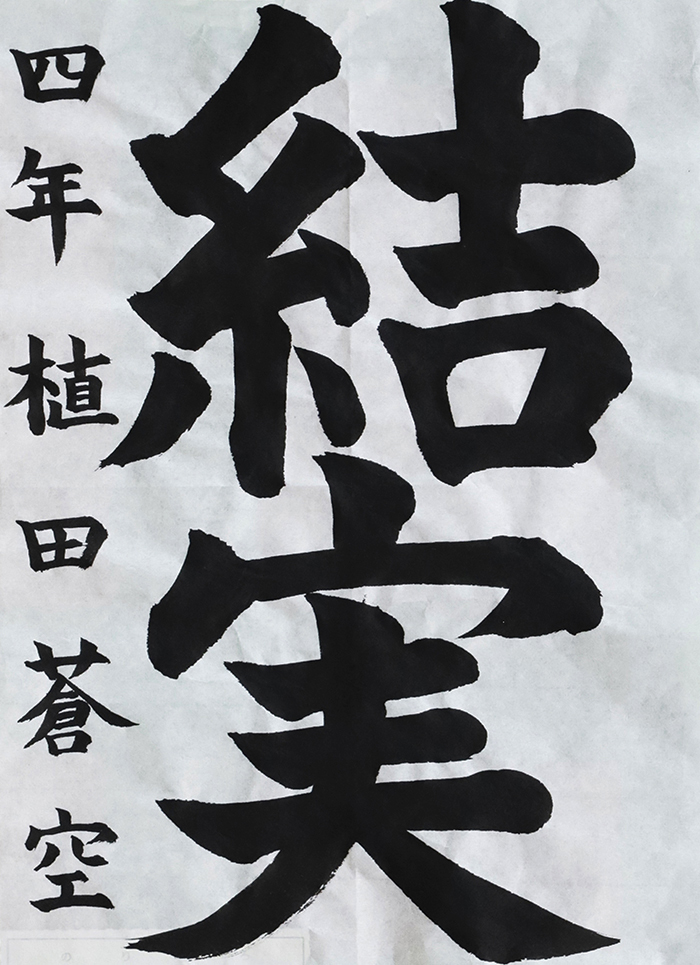 結実
四年 植田蒼空